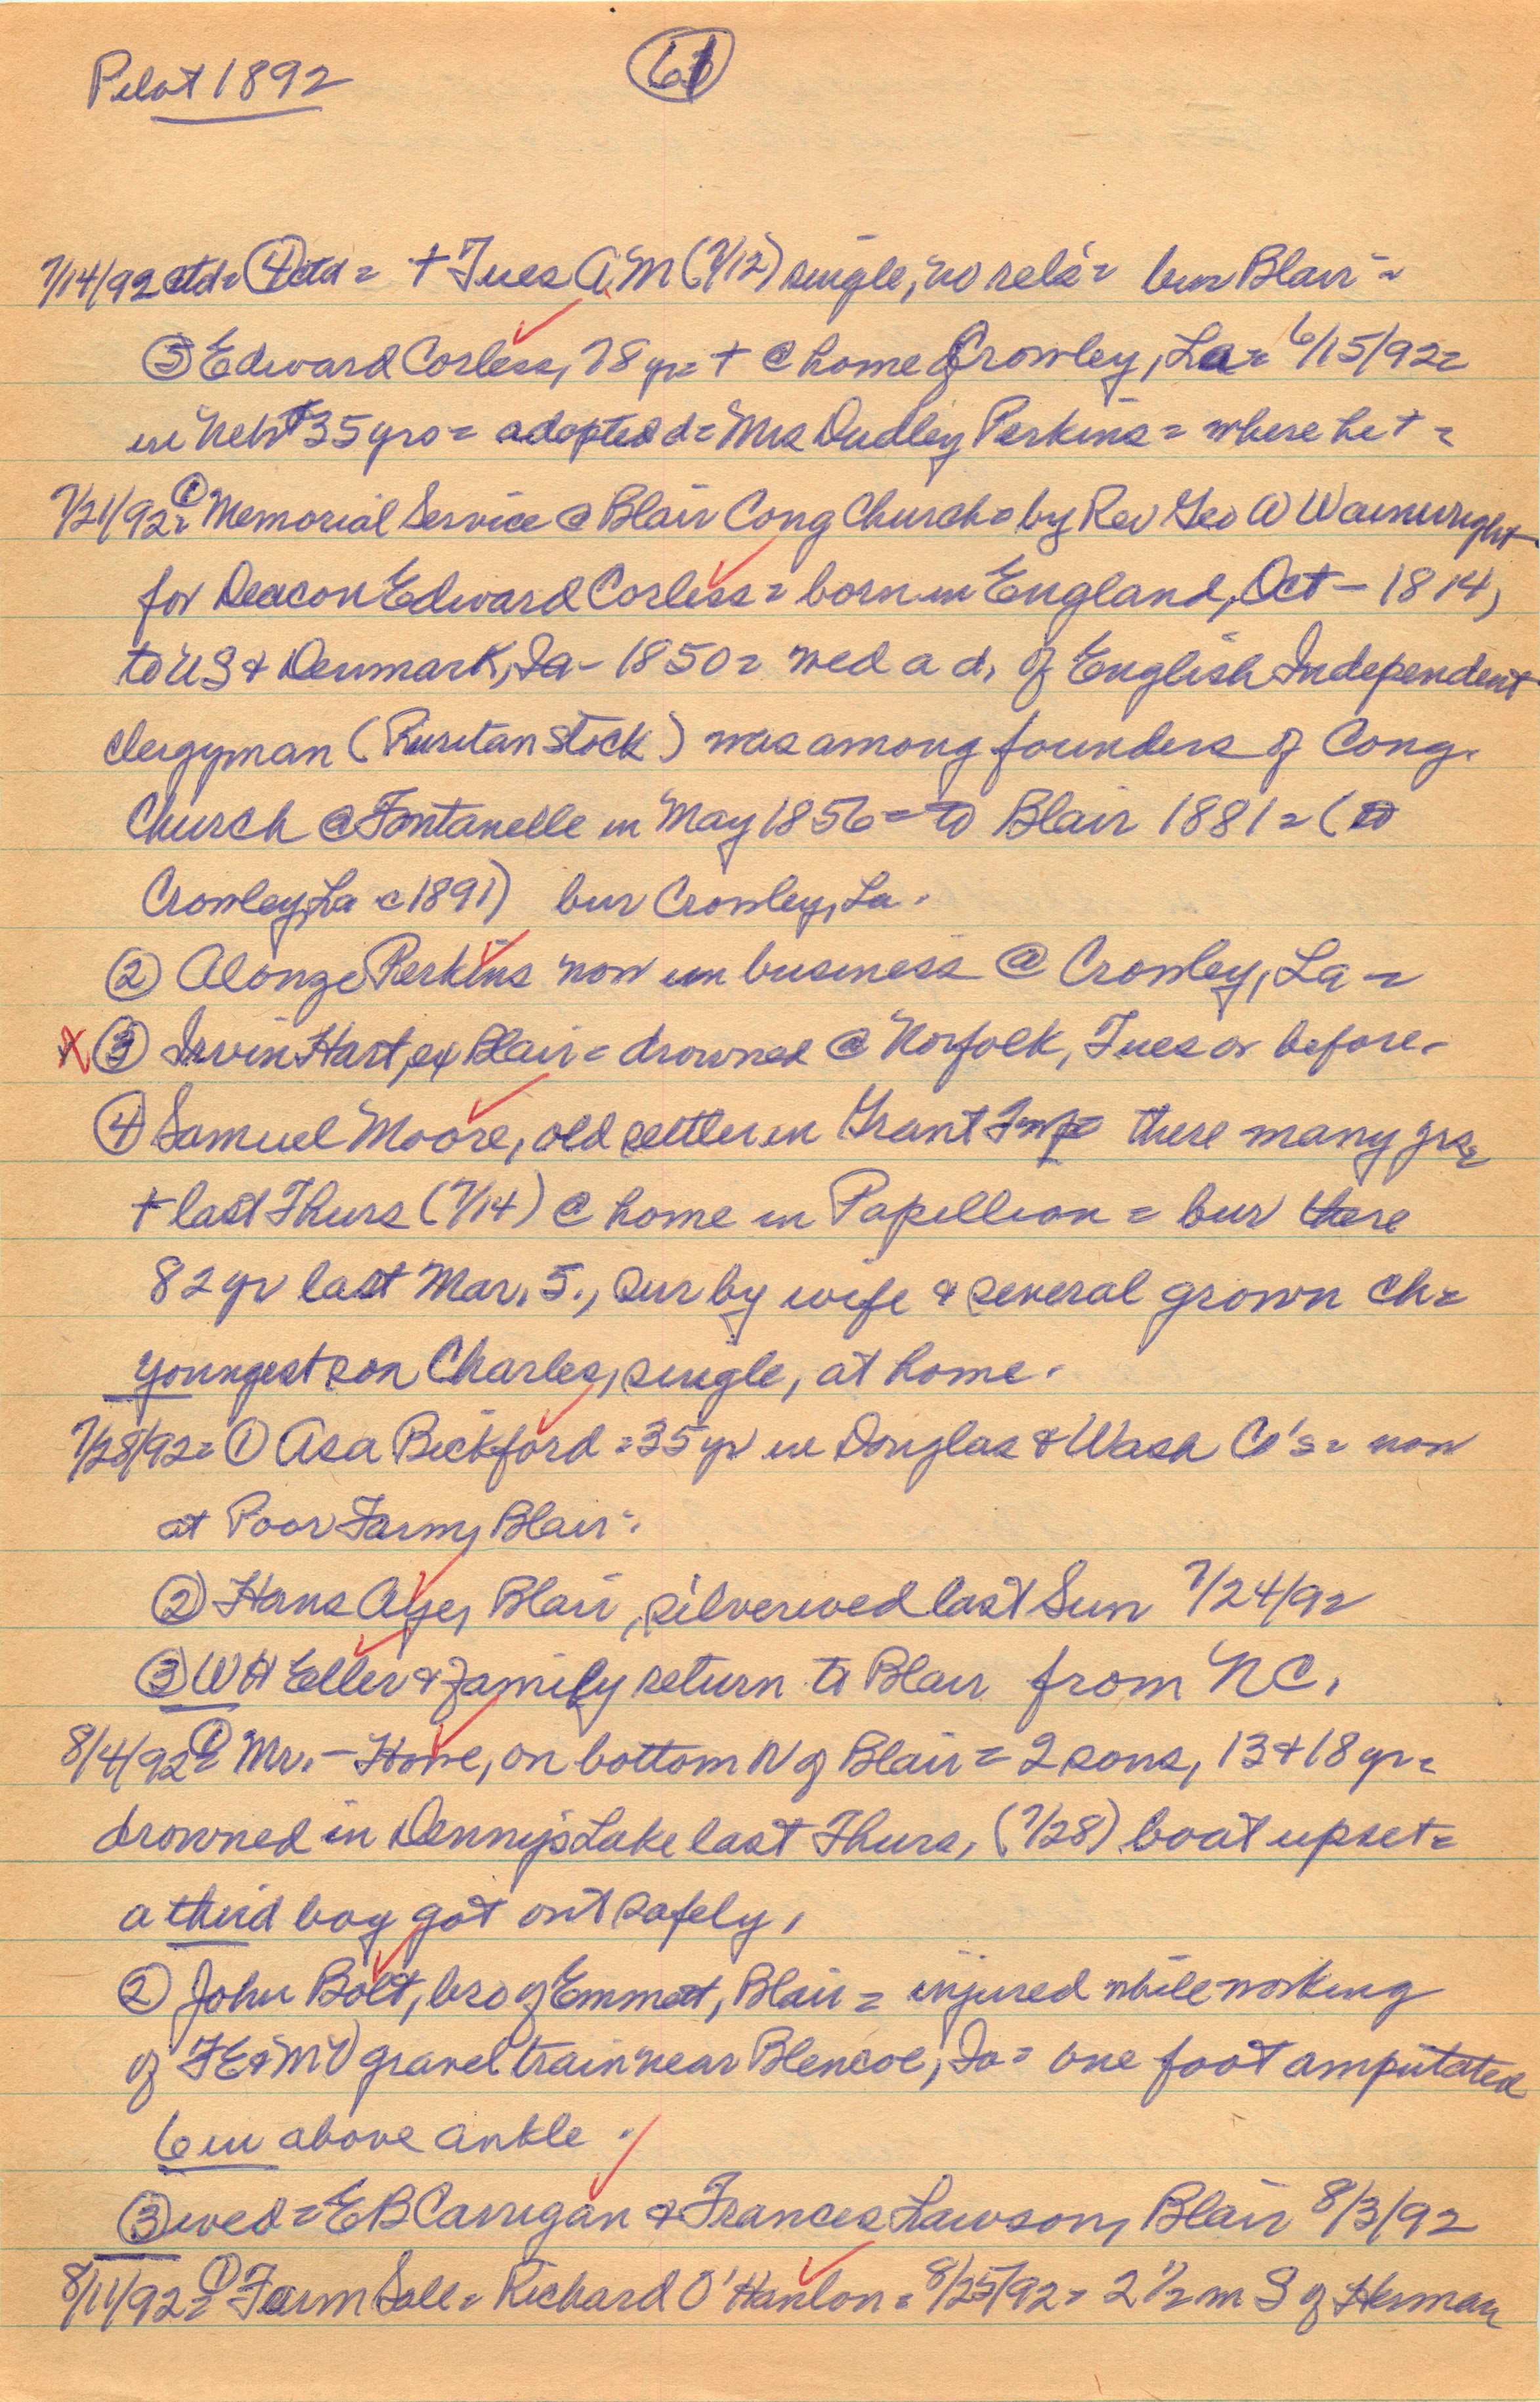 Pilot 1892
61
7/14/92 ctd = ④ ctd = + Tues AM (7/12) single, no rels = bur Blair =
⑤ Edward Corless, 78 yr = + @ home Crowley, La = 6/15/92 =
in Neb 35 yrs = adopted d = Mrs Dudley Perkins = where he + =
7/21/92 = ① Memorial Service @ Blair Cong Church = by Rev Geo A Wainwright
for Deacon Edward Corless = born in England, Oct - 1814,
to US & Denmark, Ia - 1850 = wed a d. of English Independent
clergyman (Puritan stock) was among founders of Cong.
Church @ Fontanelle in May 1856 = to Blair 1881 = (to
Crowley, La c 1891) bur Crowley, La.
② Alonzo Perkins now in business @ Crowley, La =
x ③ Irvin Hart, ex Blair = drowned @ Norfolk, Tues or before -
④ Samuel Moore, old settler in Grant Twp = there many yrs =
+ last Thurs (7/14) @ home in Papillion = bur there
82 yr last Mar. 5., sur by wife & several grown ch =
youngest son Charles, single, at home.
7/28/92 = ① Asa Bickford = 35 yr in Douglas & Wash Co's = now
at Poor Farm, Blair.
② Hans Aye, Blair, silverwed last Sun 7/24/92
③ WH Eller & family return to Blair from NC.
8/4/92 = ① Mr. - Howe, on bottom N of Blair = 2 sons, 13 & 18 yr =
drowned in Denny's Lake last Thurs, (7/28) boat upset =
a third boy got out safely.
② John Bolt, bro of Emmett, Blair = injured while working
of FE & MV gravel train near Blencoe, Ia = one foot amputated
6 in above ankle.
③ wed = EB Carrigan & Frances Lawson, Blair 8/3/92
8/11/92 = ① Farm Sale = Richard O'Hanlon = 8/25/92 = 2 1/2 m S of Herman